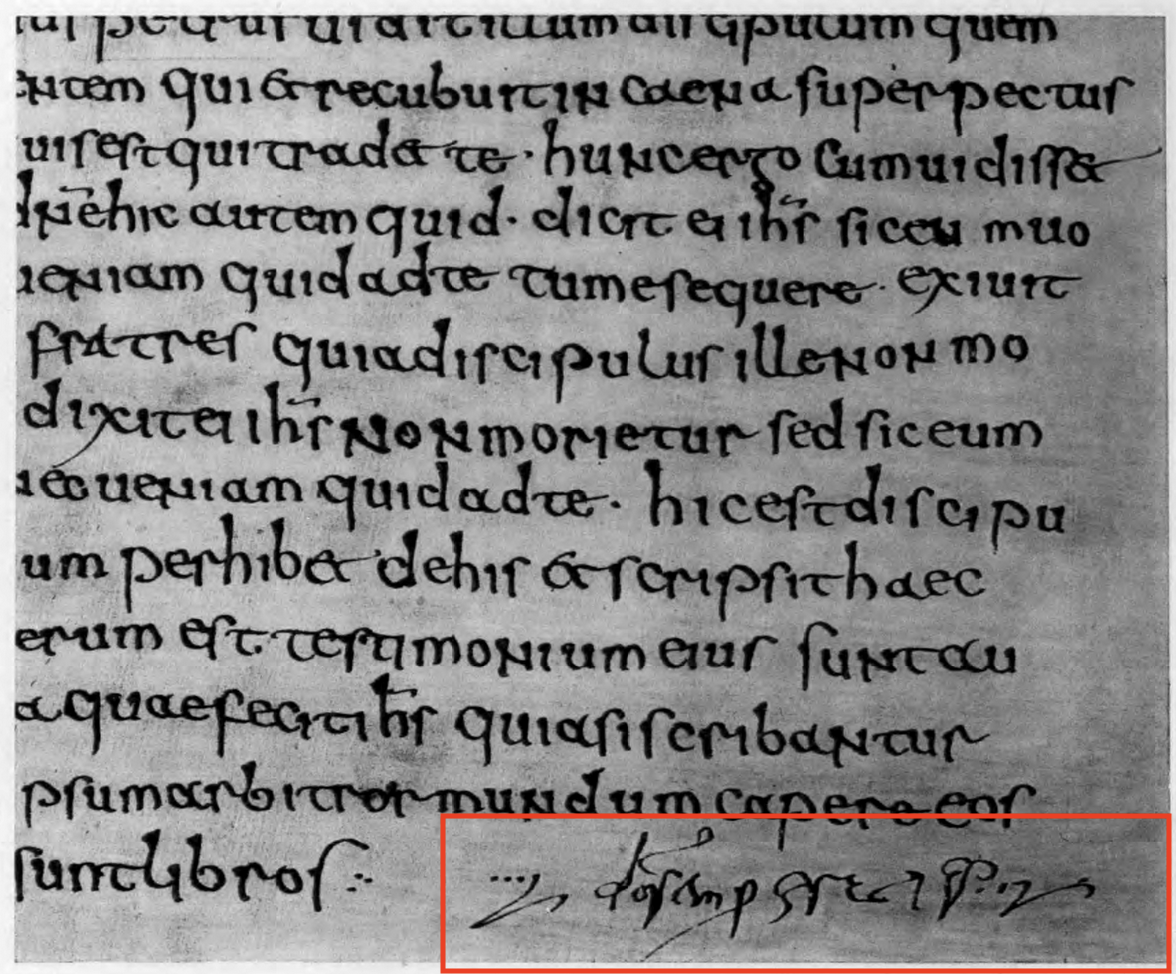 uidit illum discipulum quem
entem qui & recubuit in caena super pectus
uis est qui trad& te · hunc ergo cum uidiss&
dn̄e hic autem quid · dicit ei ih̄s sic eum uo
ueniam quid ad te tu me sequere · exiuit
fratres quia discipulus ille non mo
dixit ei ih̄s non morietur sed sic eum
nec ueniam quid ad te · hic est discipu
um perhib& de his & scripsit haec
erum est testimonium eius sunt au
a quae fecit ih̄s quia si scribantur
psum arbitror mundum capere eos
sunt libros :·